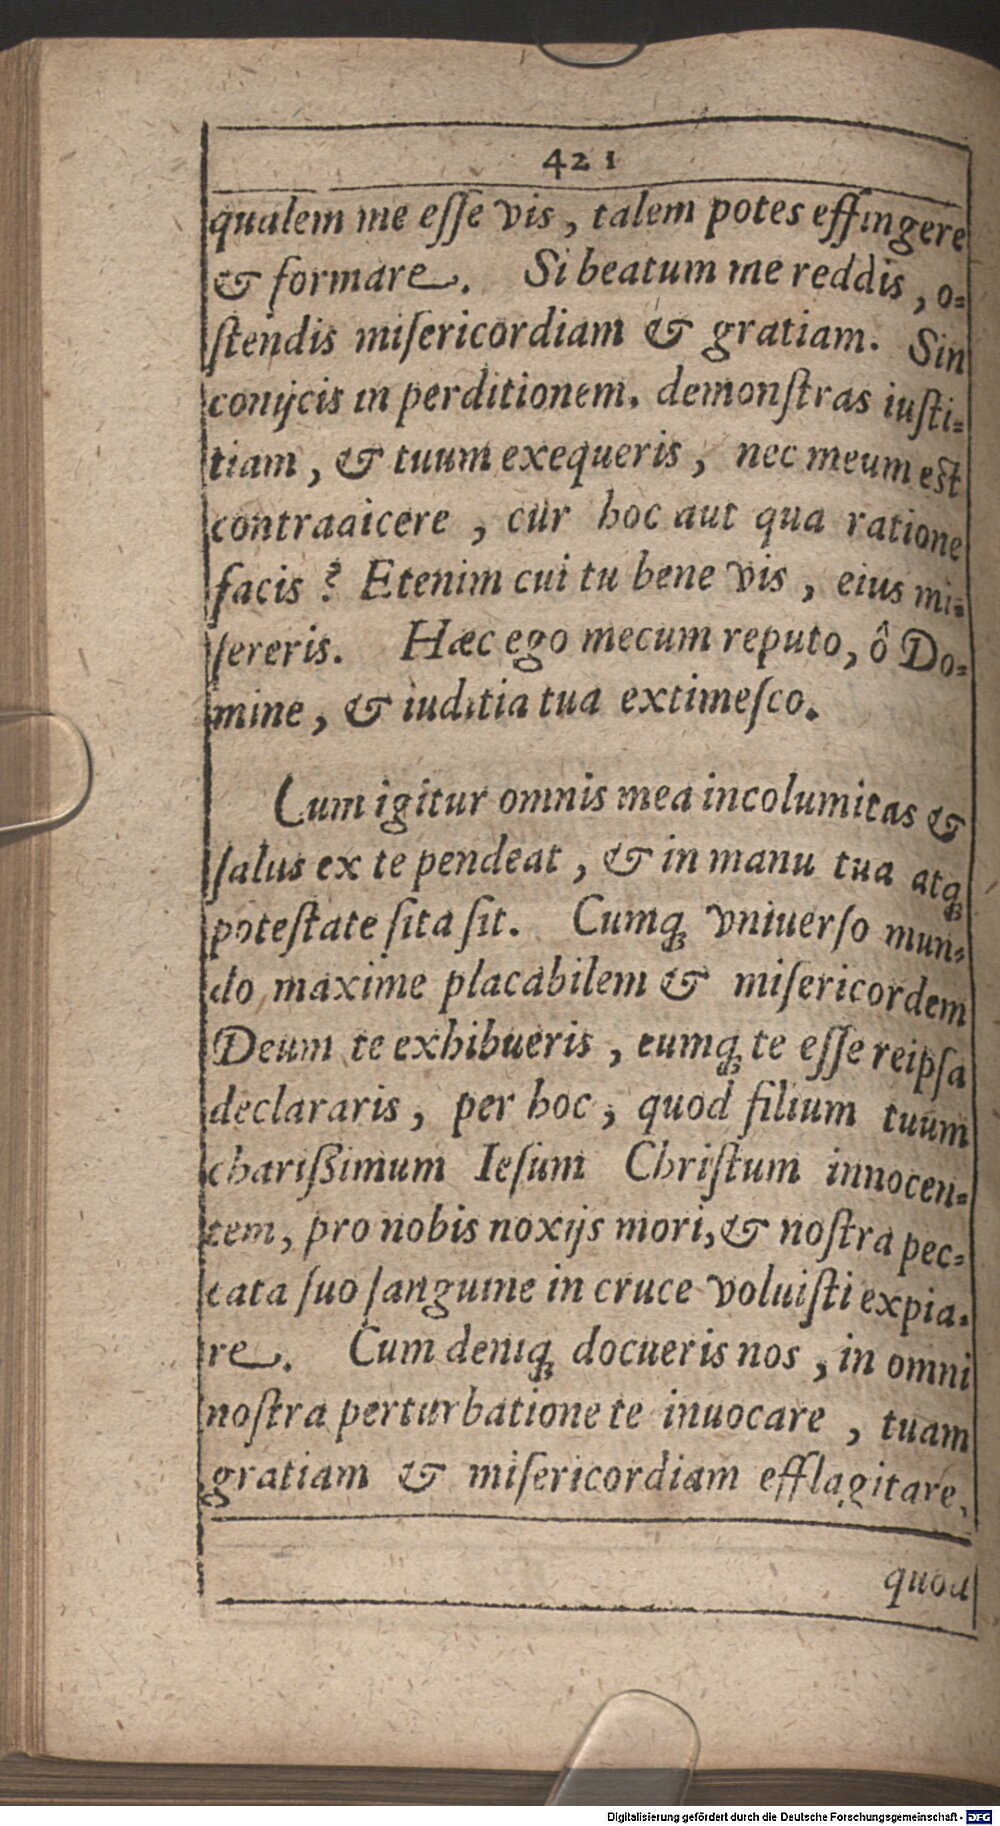 421
qualem me eſſe vis, talem potes effingere
& formare. Si beatum me reddis, o-
ſtendis miſericordiam & gratiam. Sin
conijcis in perditionem. demonſtras iuſti-
tiam, & tuum exequeris, nec meum eſt
contradicere, cur hoc aut qua ratione
facis? Etenim cui tu bene vis, eius mi-
ſereris. Hæc ego mecum reputo, ô Do-
mine, & iuditia tua extimeſco.
Cum igitur omnis mea incolumitas &
ſalus ex te pendeat, & in manu tua atq́;
poteſtate ſita ſit. Cumq́; vniuerſo mun-
do maxime placabilem & miſericordem
Deum te exhibueris, eumq́; te eſſe reipſa
declararis, per hoc, quod filium tuum
chariſſimum Ieſum Chriſtum innocen-
tem, pro nobis noxijs mori, & noſtra pec-
cata ſuo ſanguine in cruce voluiſti expia-
re. Cum deniq́; docueris nos, in omni
noſtra perturbatione te inuocare, tuam
gratiam & miſericordiam efflagitare,
quod
Digitalisierung gefördert durch die Deutsche Forschungsgemeinschaft - DFG